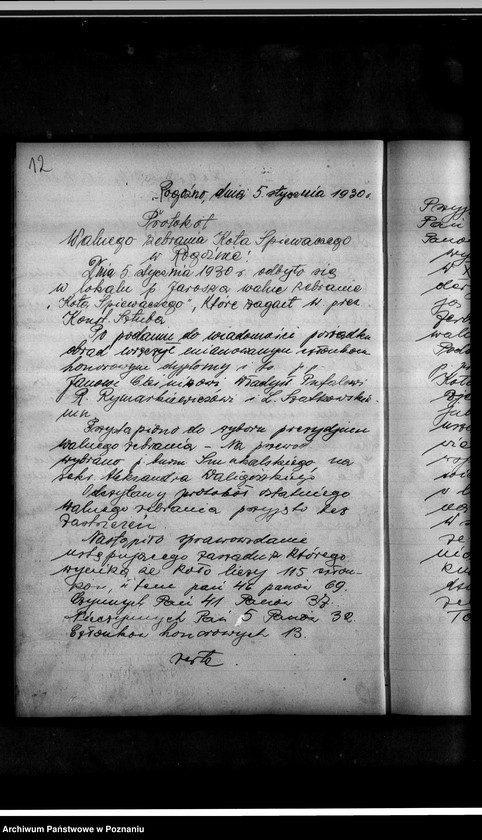 12
Rogoźno, dnia 5. stycznia 1930 r
Protokół
Walnego zebrania Koła Śpiewaczego
w Rogoźnie!
Dnia 5. stycznia 1930 r. odbyło się
w lokalu p. Jarosza walne zebranie
„Koła Śpiewaczego", które zagaił w prez
Kond. Sztuba
Po podaniu do wiadomości porządku
obrad wręczył mianowanym członkom
honorowym dyplomy i to pp.
Janowi
R. Rymarkiewiczowi i L. Szatkowskie-
mu.
Przystąpiono do wyboru prezydjum
walnego zebrania – Na przew
wybrano i na
sekr. Aleksandra Waligórskiego
Odczytany protokół ostatniego
walnego zebrania przyjęto bez
zastrzeżeń
Nastąpiło sprawozdanie
ustępującego zarządu z którego
wynika że koło liczy 115 człon-
ków, w tem pań 46 panów 69.
Czynnych Pań 41 Panów 37.
Nieczynnych Pań 5 Panów 32
Członków honorowych 13.
verte
Archiwum Państwowe w Poznaniu